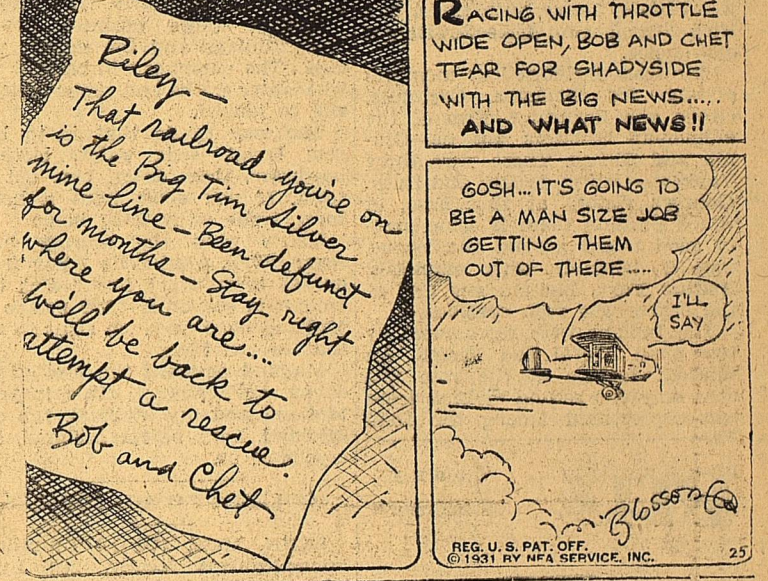 Riley —
That railroad you're on
is the Big Tim Silver
mine line — Been defunct
for months — Stay right
where you are....
We'll be back to
attempt a rescue.
Bob and Chet
RACING WITH THROTTLE
WIDE OPEN, BOB AND CHET
TEAR FOR SHADYSIDE
WITH THE BIG NEWS.....
AND WHAT NEWS!!
GOSH... IT'S GOING TO
BE A MAN SIZE JOB
GETTING THEM
OUT OF THERE....
I'LL
SAY
Blosser
REG. U. S. PAT. OFF.
© 1931 BY NEA SERVICE, INC.
25